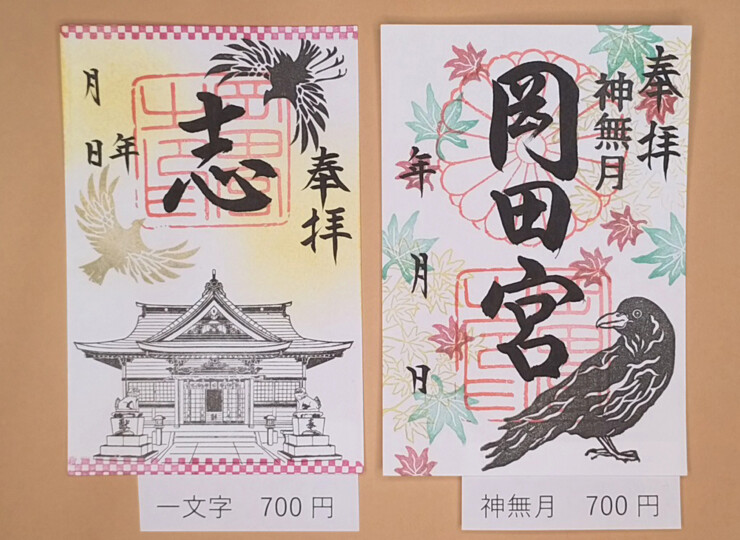 奉拝
志
年
月
日
一文字 700円
奉拝
神無月
岡田宮
年
月
日
神無月 700円